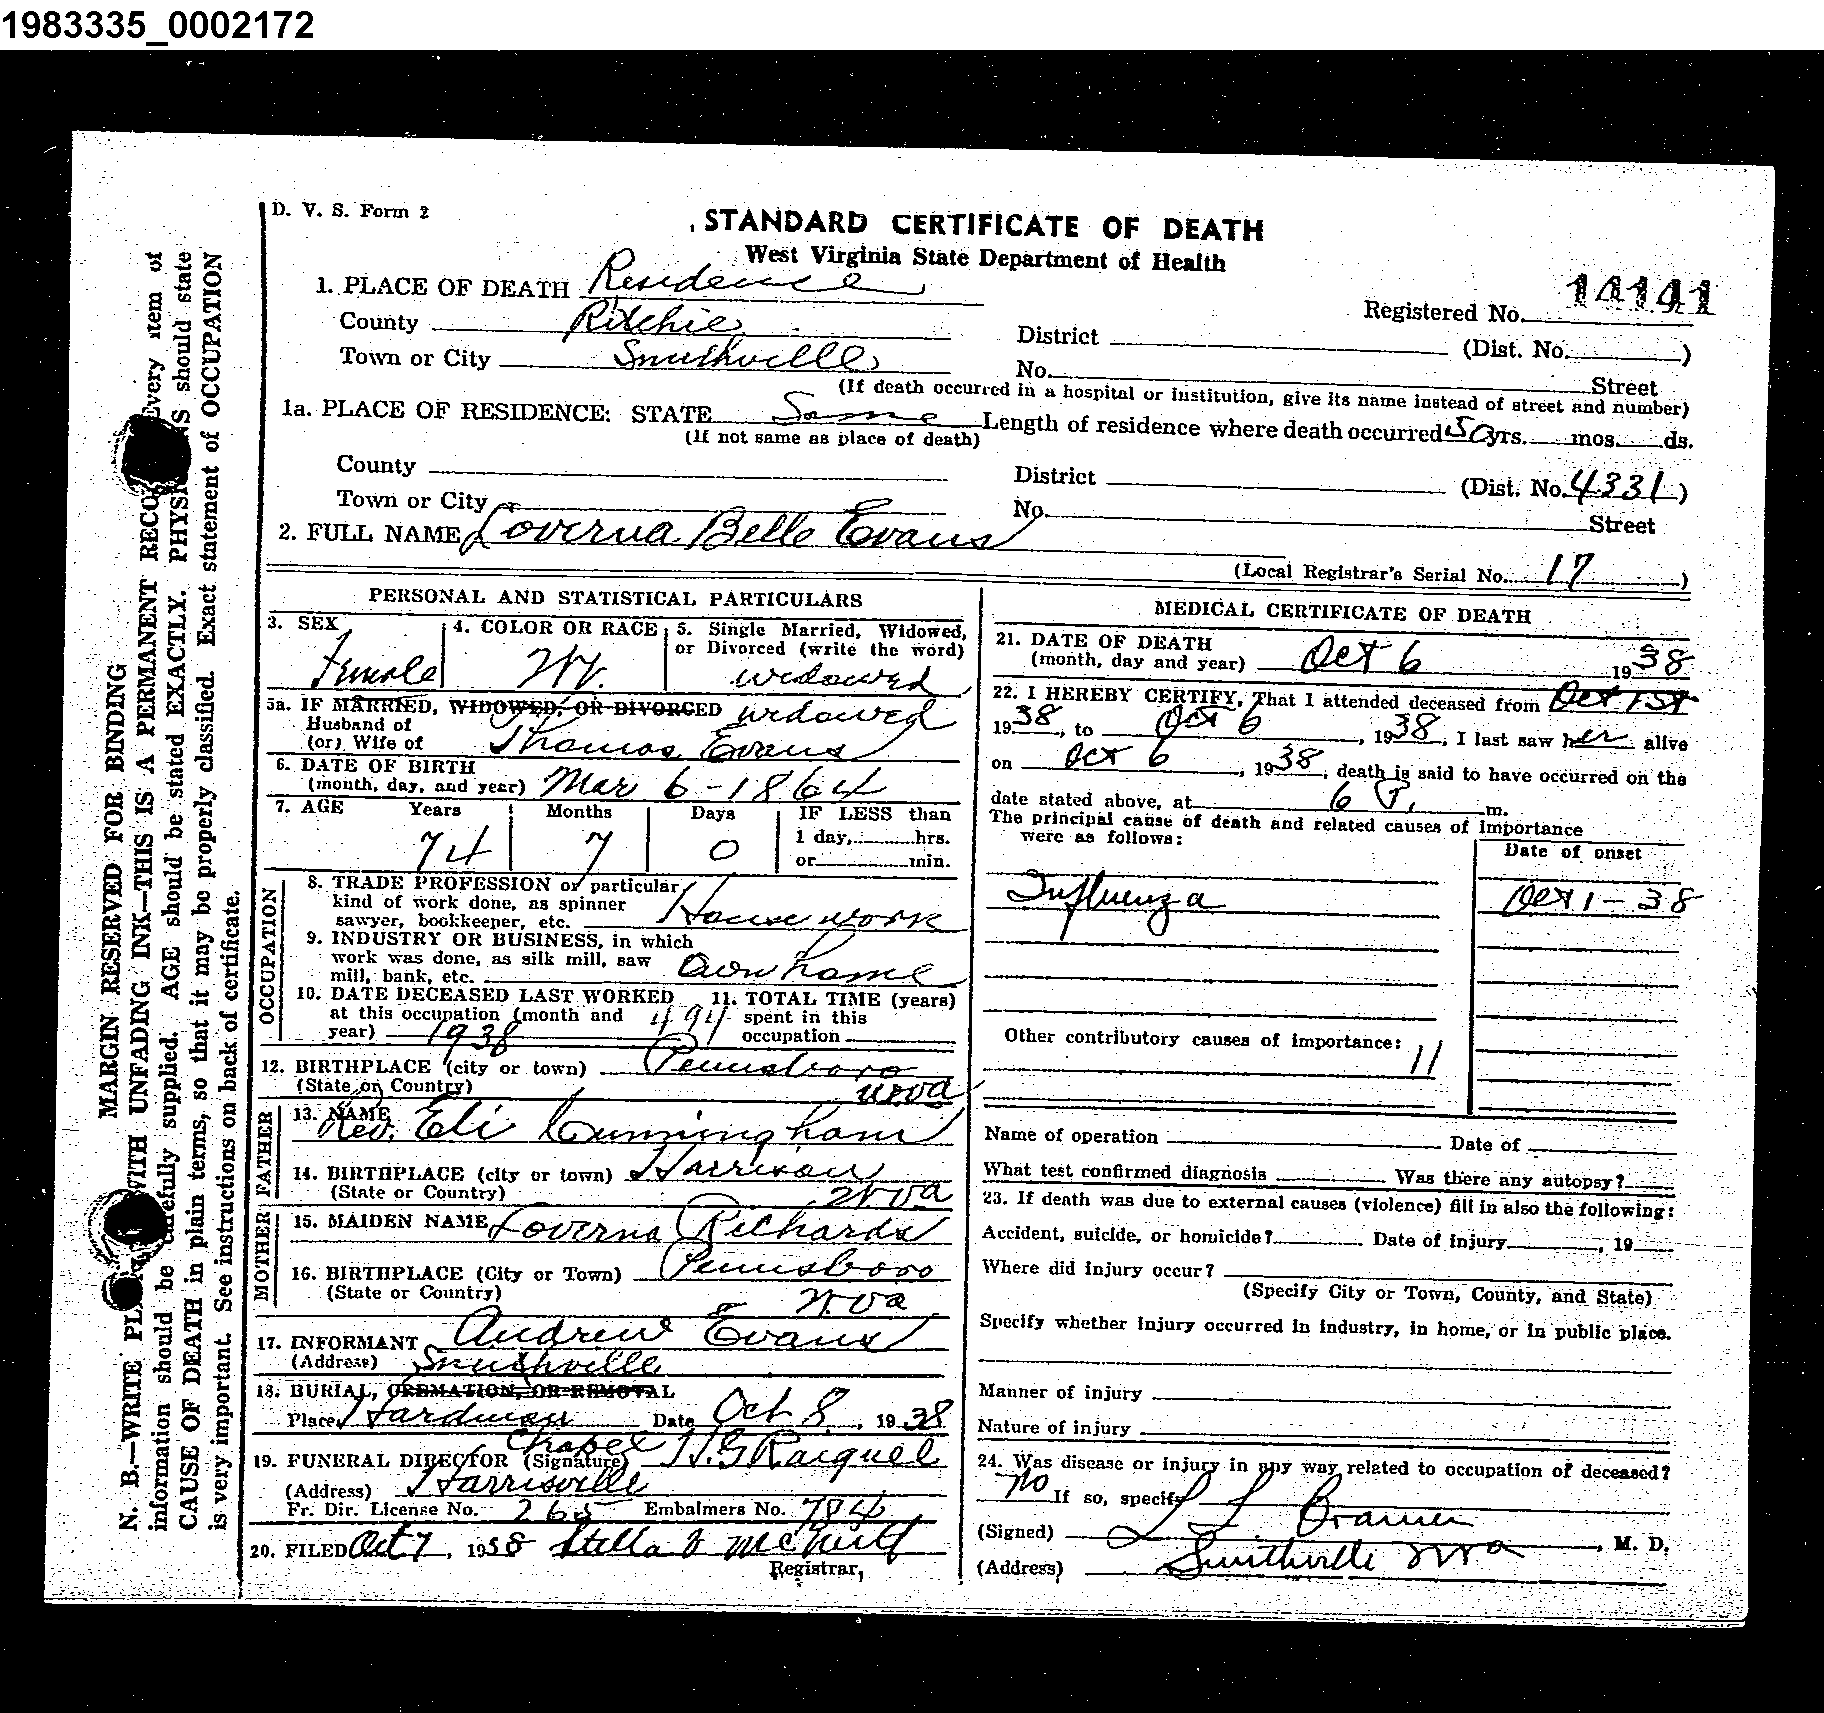 1983335_0002172
D. V. S. Form 2
STANDARD CERTIFICATE OF DEATH
West Virginia State Department of Health
1. PLACE OF DEATH Residence
Registered No. 14141
County Ritchie
District (Dist. No. )
Town or City Smithville
No. Street
(If death occurred in a hospital or institution, give its name instead of street and number)
1a. PLACE OF RESIDENCE: STATE Same Length of residence where death occurred 50 yrs. mos. ds.
(If not same as place of death)
County District (Dist. No. 4331)
Town or City No. Street
2. FULL NAME Loverna Belle Evans
(Local Registrar's Serial No. 17)
PERSONAL AND STATISTICAL PARTICULARS
3. SEX 4. COLOR OR RACE 5. Single Married, Widowed,
or Divorced (write the word)
Female W. widowed
5a. IF MARRIED, WIDOWED, OR DIVORCED widowed
Husband of
(or) Wife of Thomas Evans
6. DATE OF BIRTH
(month, day, and year) Mar 6-1864
7. AGE Years Months Days IF LESS than
1 day, hrs.
74 7 0 or min.
OCCUPATION
8. TRADE PROFESSION or particular
kind of work done, as spinner
sawyer, bookkeeper, etc. House work
9. INDUSTRY OR BUSINESS, in which
work was done, as silk mill, saw
mill, bank, etc. Own home
10. DATE DECEASED LAST WORKED 11. TOTAL TIME (years)
at this occupation (month and spent in this
year) 1938 occupation
12. BIRTHPLACE (city or town) Pennsboro
(State or Country) W Va
FATHER
13. NAME Rev. Eli Cunningham
14. BIRTHPLACE (city or town) Harrison
(State or Country) W Va
MOTHER
15. MAIDEN NAME Loverna Richards
16. BIRTHPLACE (City or Town) Pennsboro
(State or Country) W. Va
17. INFORMANT Andrew Evans
(Address) Smithville
18. BURIAL, CREMATION, OR REMOVAL
Place Hardman Date Oct 8, 1938
Chapel
19. FUNERAL DIRECTOR (Signature) H. G Raiguel
(Address) Harrisville
Fr. Dir. License No. 265 Embalmers No. 784
20. FILED Oct 7, 1938 Stella
Registrar,
MEDICAL CERTIFICATE OF DEATH
21. DATE OF DEATH
(month, day and year) Oct 6 1938
22. I HEREBY CERTIFY, That I attended deceased from Oct 1st
1938, to Oct 6, 1938, I last saw her alive
on Oct 6, 1938, death is said to have occurred on the
date stated above, at 6 P. m.
The principal cause of death and related causes of importance
were as follows:
Date of onset
Influenza Oct 1-38
Other contributory causes of importance: 11
Name of operation Date of
What test confirmed diagnosis Was there any autopsy?
23. If death was due to external causes (violence) fill in also the following:
Accident, suicide, or homicide? Date of injury , 19
Where did injury occur?
(Specify City or Town, County, and State)
Specify whether injury occurred in industry, in home, or in public place.
Manner of injury
Nature of injury
24. Was disease or injury in any way related to occupation of deceased?
No If so, specify
(Signed) , M. D.
(Address) Smithville W Va
MARGIN RESERVED FOR BINDING
N. B.—WRITE WITH UNFADING INK—THIS IS A PERMANENT Every item of
information should be supplied. AGE should be stated EXACTLY. should state
CAUSE OF DEATH in plain terms, so that it may be properly classified. Exact statement of OCCUPATION
is very important. See instructions on back of certificate.